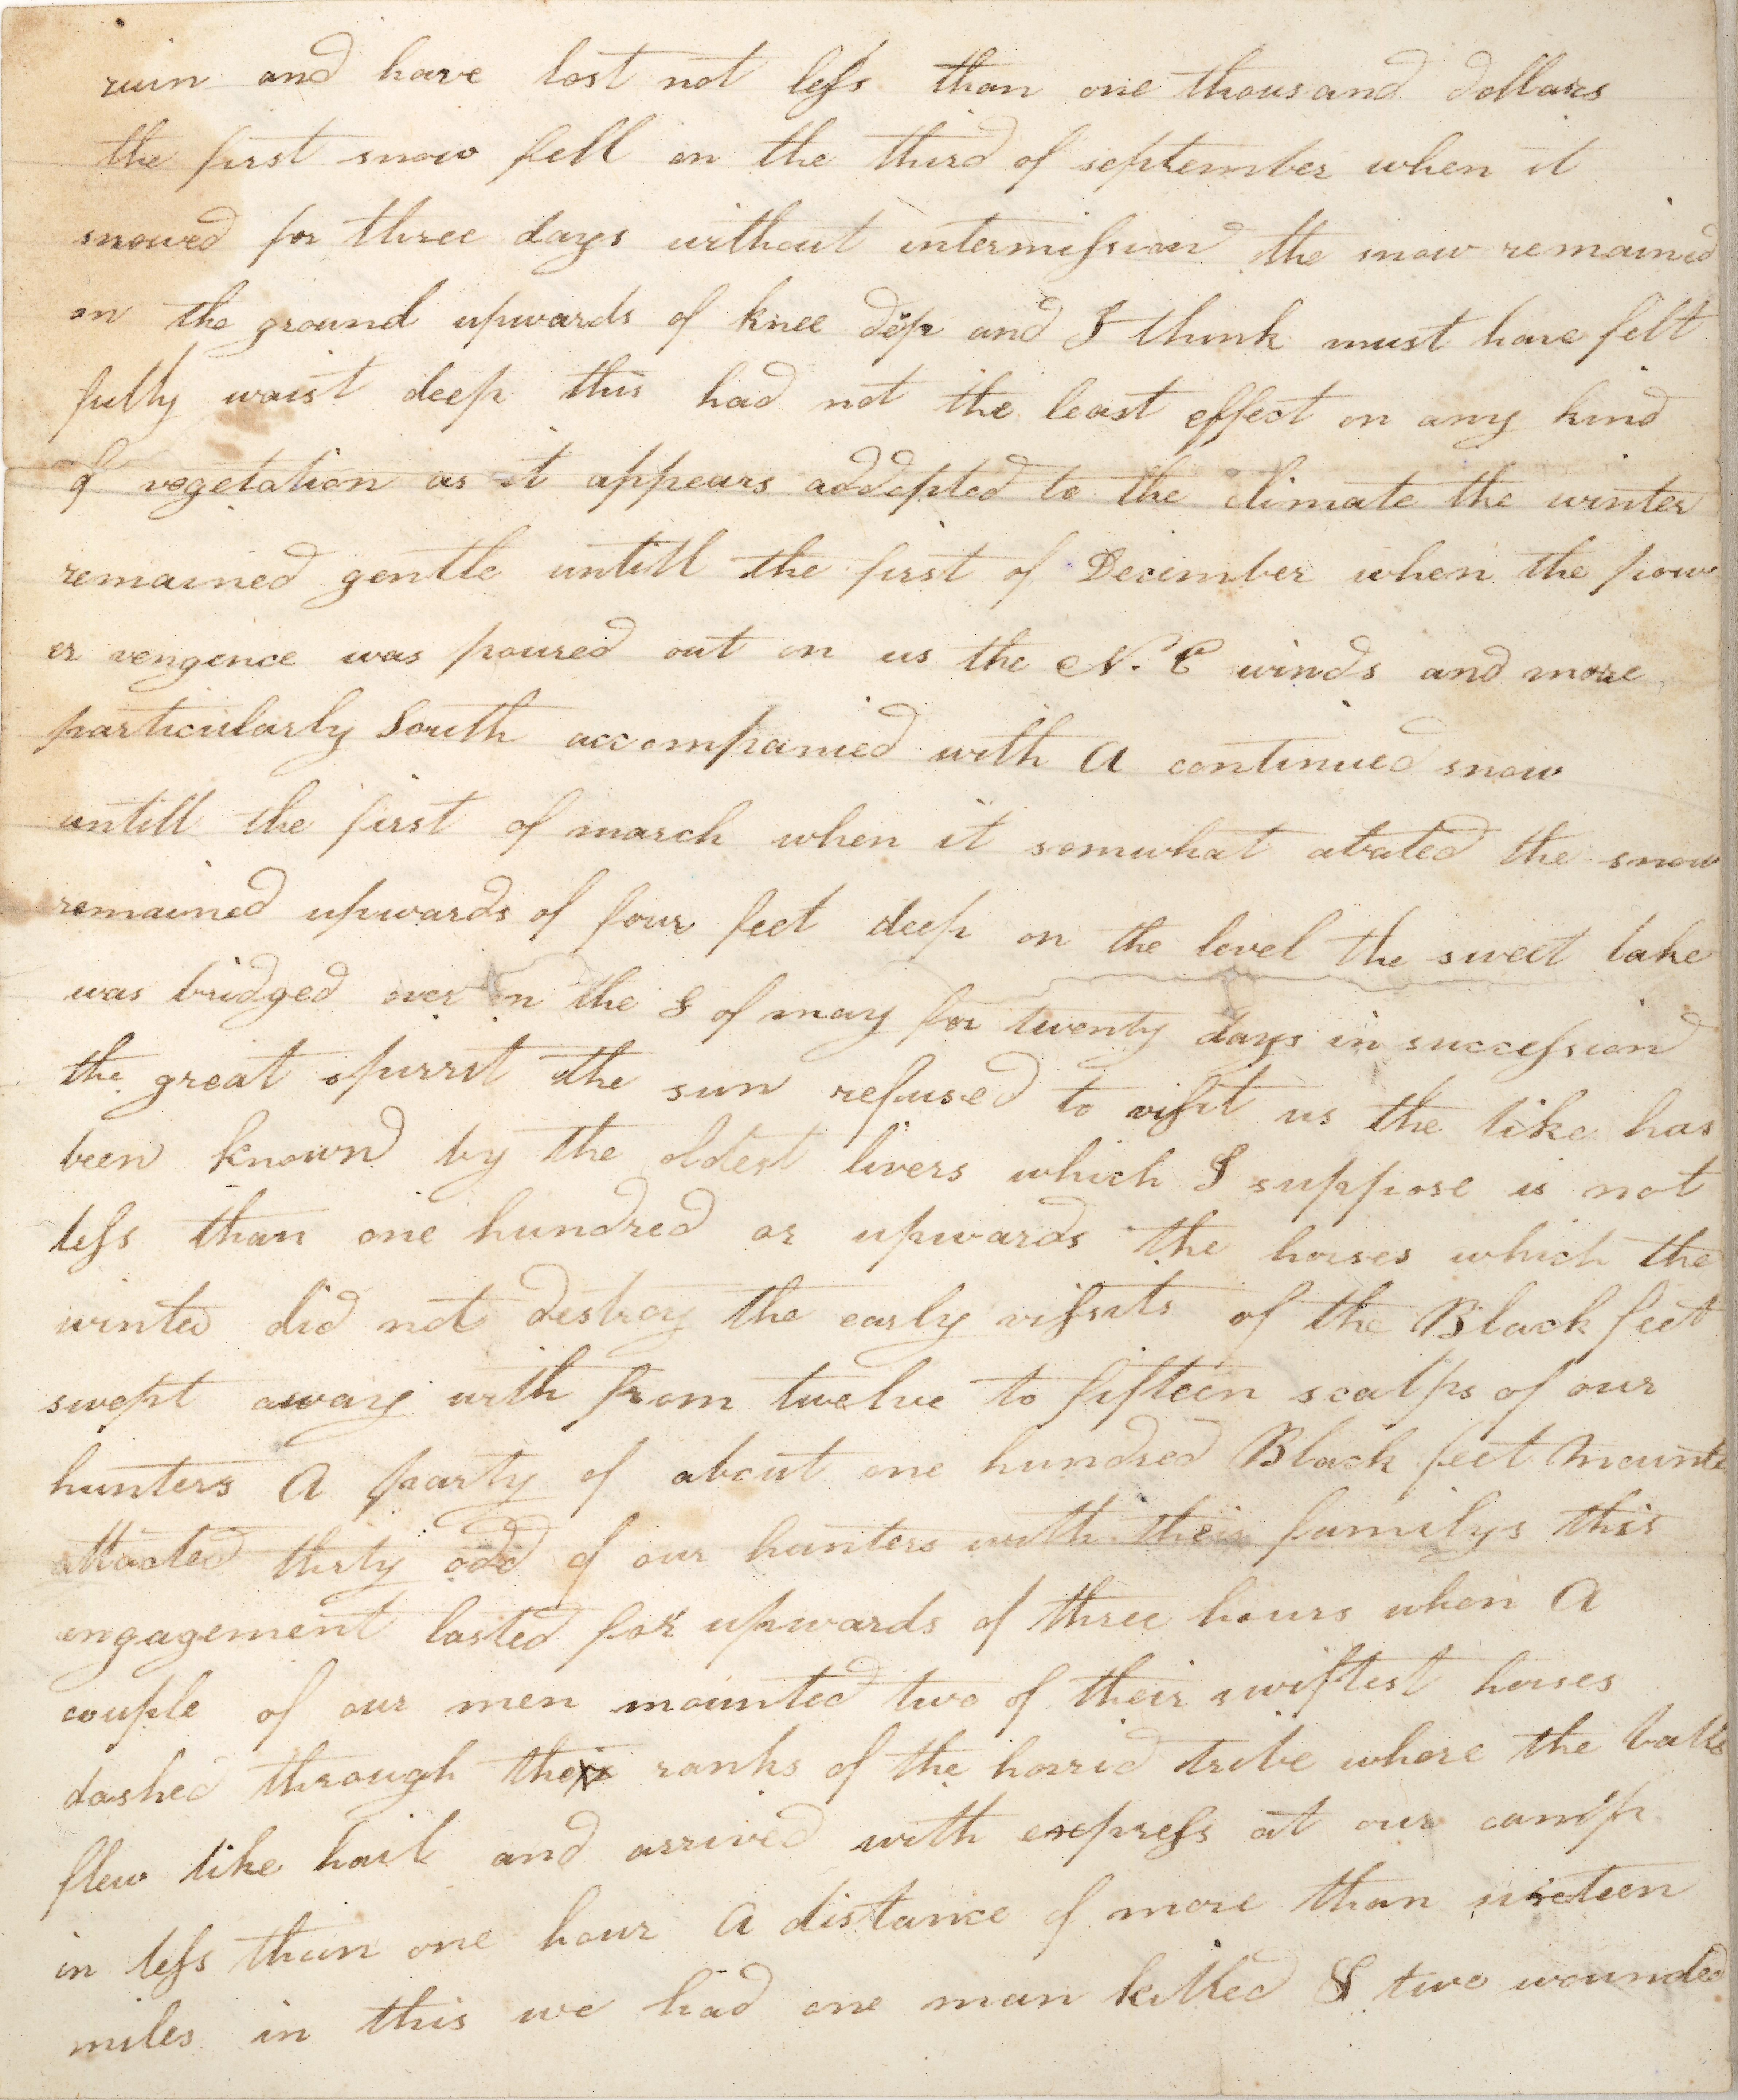 ruin and have lost not less than one thousand dollars
the first snow fell on the third of september when it
snowed for three days without intermission the snow remained
on the ground upwards of knee dep and I think must have felt
fully waist deep this had not the least effect on any kind
of vegetation as it appears addepted to the climate the winter
remained gentle untill the first of December when the pow
er vengence was poured out on us the N. E winds and more
particularly South accompanied with A continued snow
untill the first of march when it somwhat abated the snow
remained upwards of four feet deep on the level the sweet lake
was bridged over on the 8 of may for twenty days in succession
the great spirrit the sun refused to visit us the like has
been known by the oldest livers which I suppose is not
less than one hundred or upwards the horses which the
winted did not destroy the early vissits of the Black feet
swept away with from twelve to fifteen scalps of our
hunters A party of about one hundred Black feet Mounte
attacted thirty odd of our hunters with their familys this
engagement lasted for upwards of three hours when A
couple of our men mounted two of their swiftest horses
dashed through the ranks of the horrid tribe where the balls
flew like hail and arrived with express at our camp
in less than one hour A distance of more than sixteen
miles in this we had one man killed & two wounded